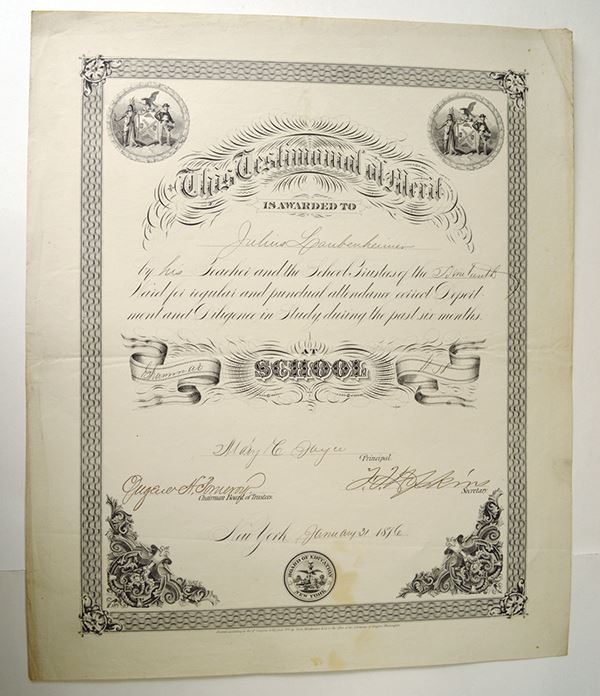 This Testimonial of Merit
IS AWARDED TO
Julius Laubenheimer
by his Teacher and the School Trustees of the Seventeenth
Ward for regular and punctual attendance correct Deport-
ment and Diligence in Study during the past six months.
AT
Grammar SCHOOL
Mary C.
Principal.
Eugene H. Pomeroy
Chairman Board of Trustees.
Secretary.
New York January 31 1876
BOARD OF EDUCATION
NEW YORK